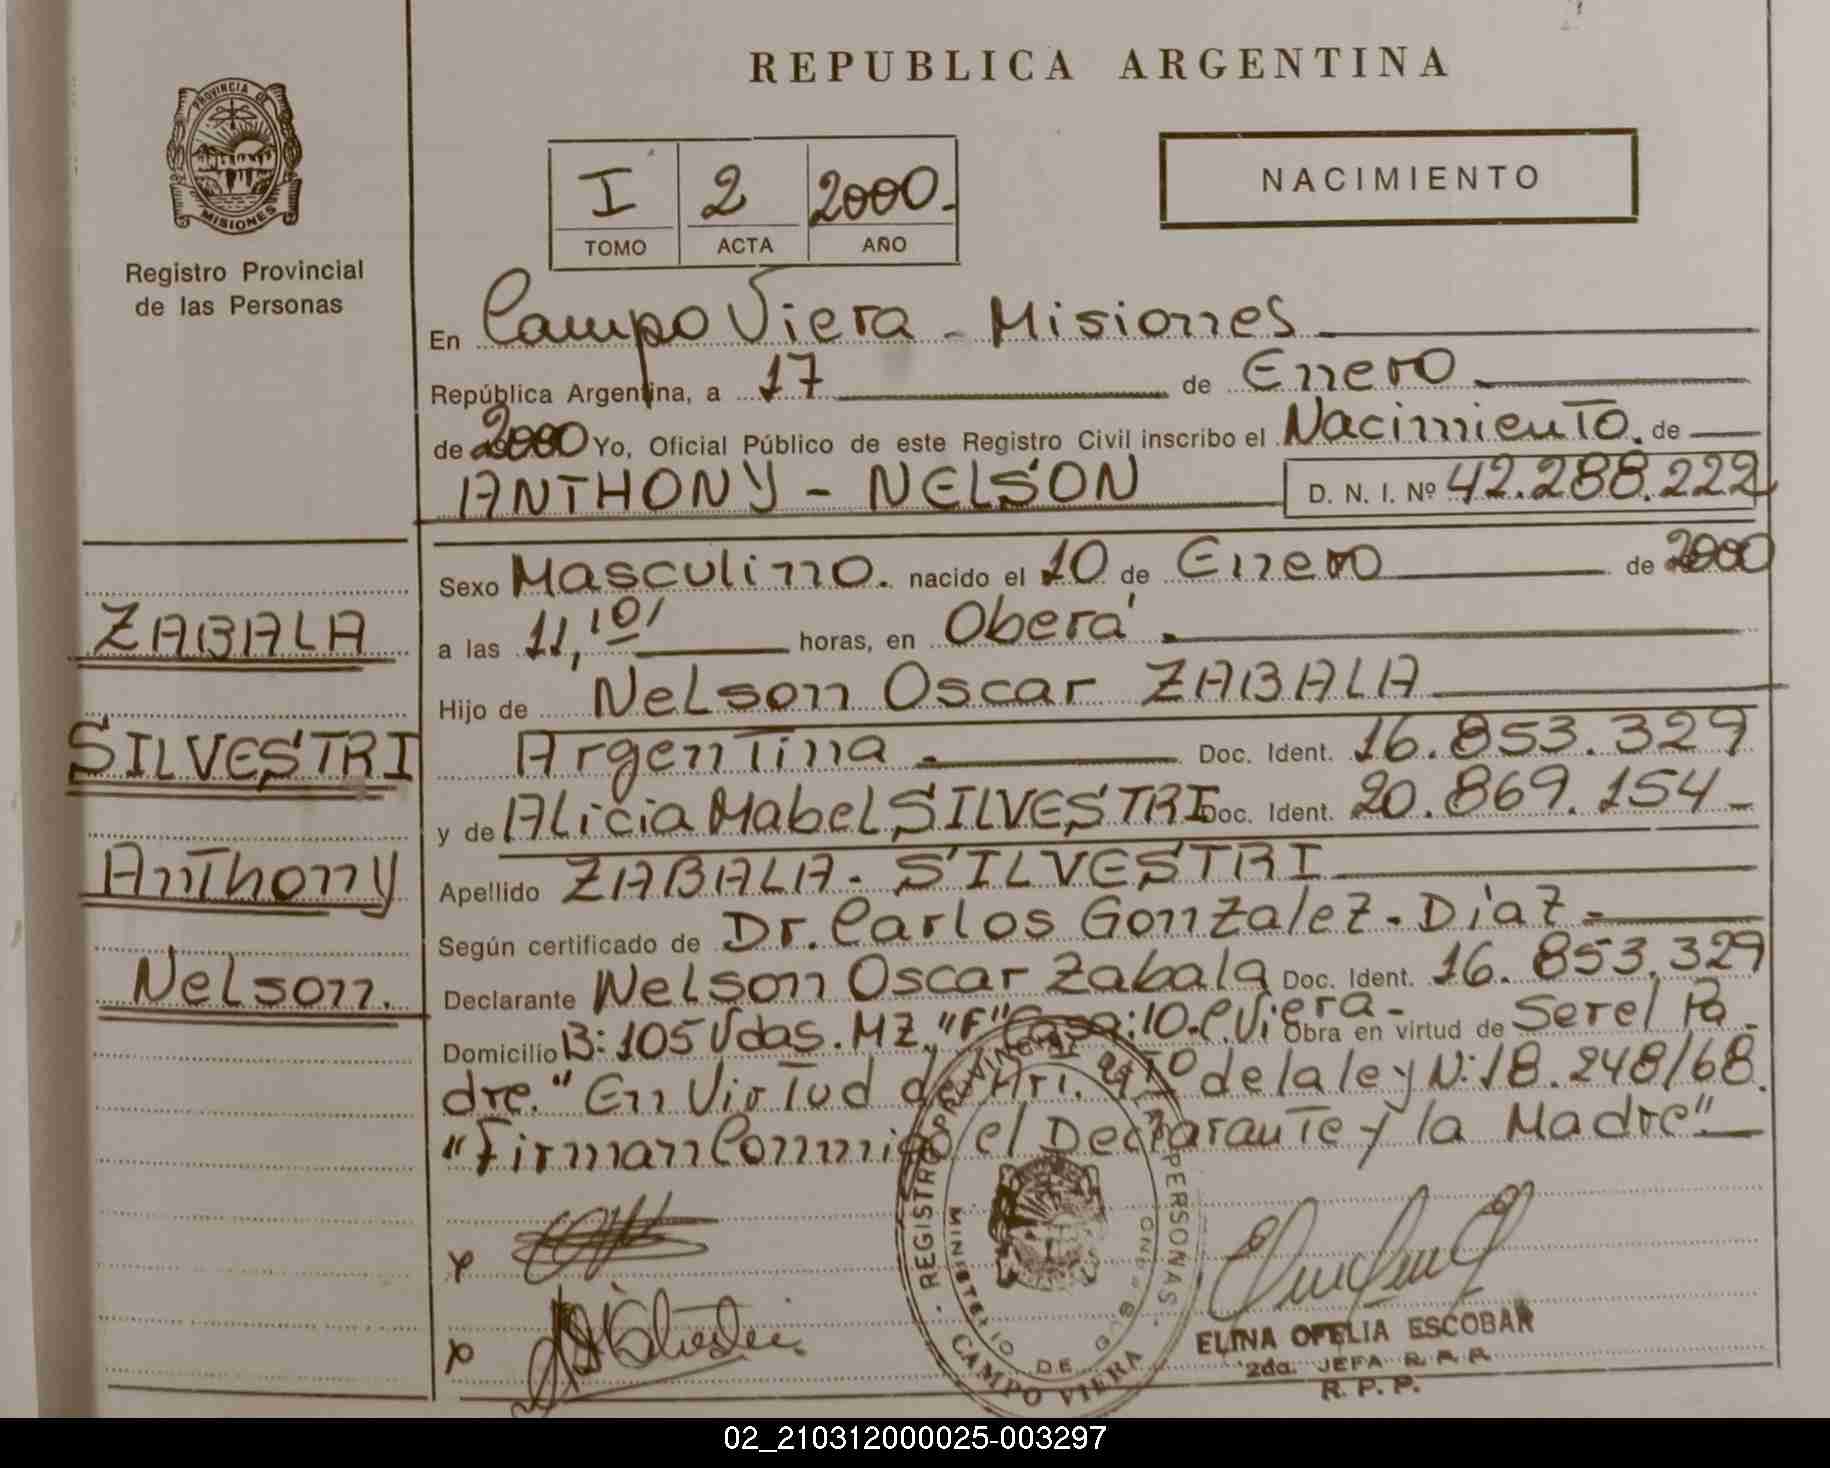 REPUBLICA ARGENTINA
PROVINCIA DE
MISIONES
Registro Provincial
de las Personas
I 2 2000.
TOMO ACTA AÑO
NACIMIENTO
En Campo Viera - Misiones
República Argentina, a 17 de Enero
de 2000 Yo, Oficial Público de este Registro Civil inscribo el Nacimiento. de
ANTHONY - NELSON D. N. I. Nº 42.288.222
Sexo Masculino. nacido el 10 de Enero de 2000
a las 11,10, horas, en Oberá.
Hijo de Nelson Oscar ZABALA
Argentina. Doc. Ident. 16.853.329
y de Alicia Mabel SILVESTRI Doc. Ident. 20.869.154-
Apellido ZABALA - SILVESTRI
Según certificado de Dr. Carlos Gonzalez - Díaz -
Declarante Nelson Oscar Zabala Doc. Ident. 16.853.329
Domicilio B: 105 Vdas. MZ. "F" Casa: 10. C. Viera - Obra en virtud de Ser el Pa-
dre." En Virtud de Art. de la ley N: 18.248/68.
"Firman Conmigo el Declarante y la Madre"
ZABALA
SILVESTRI
Anthony
Nelson.
x
x
REGISTRO PROVINCIAL DE LAS PERSONAS
MINISTERIO DE GOBIERNO
CAMPO VIERA
ELINA OFELIA ESCOBAR
2da. JEFA R.P.P.
R. P. P.
02_210312000025-003297